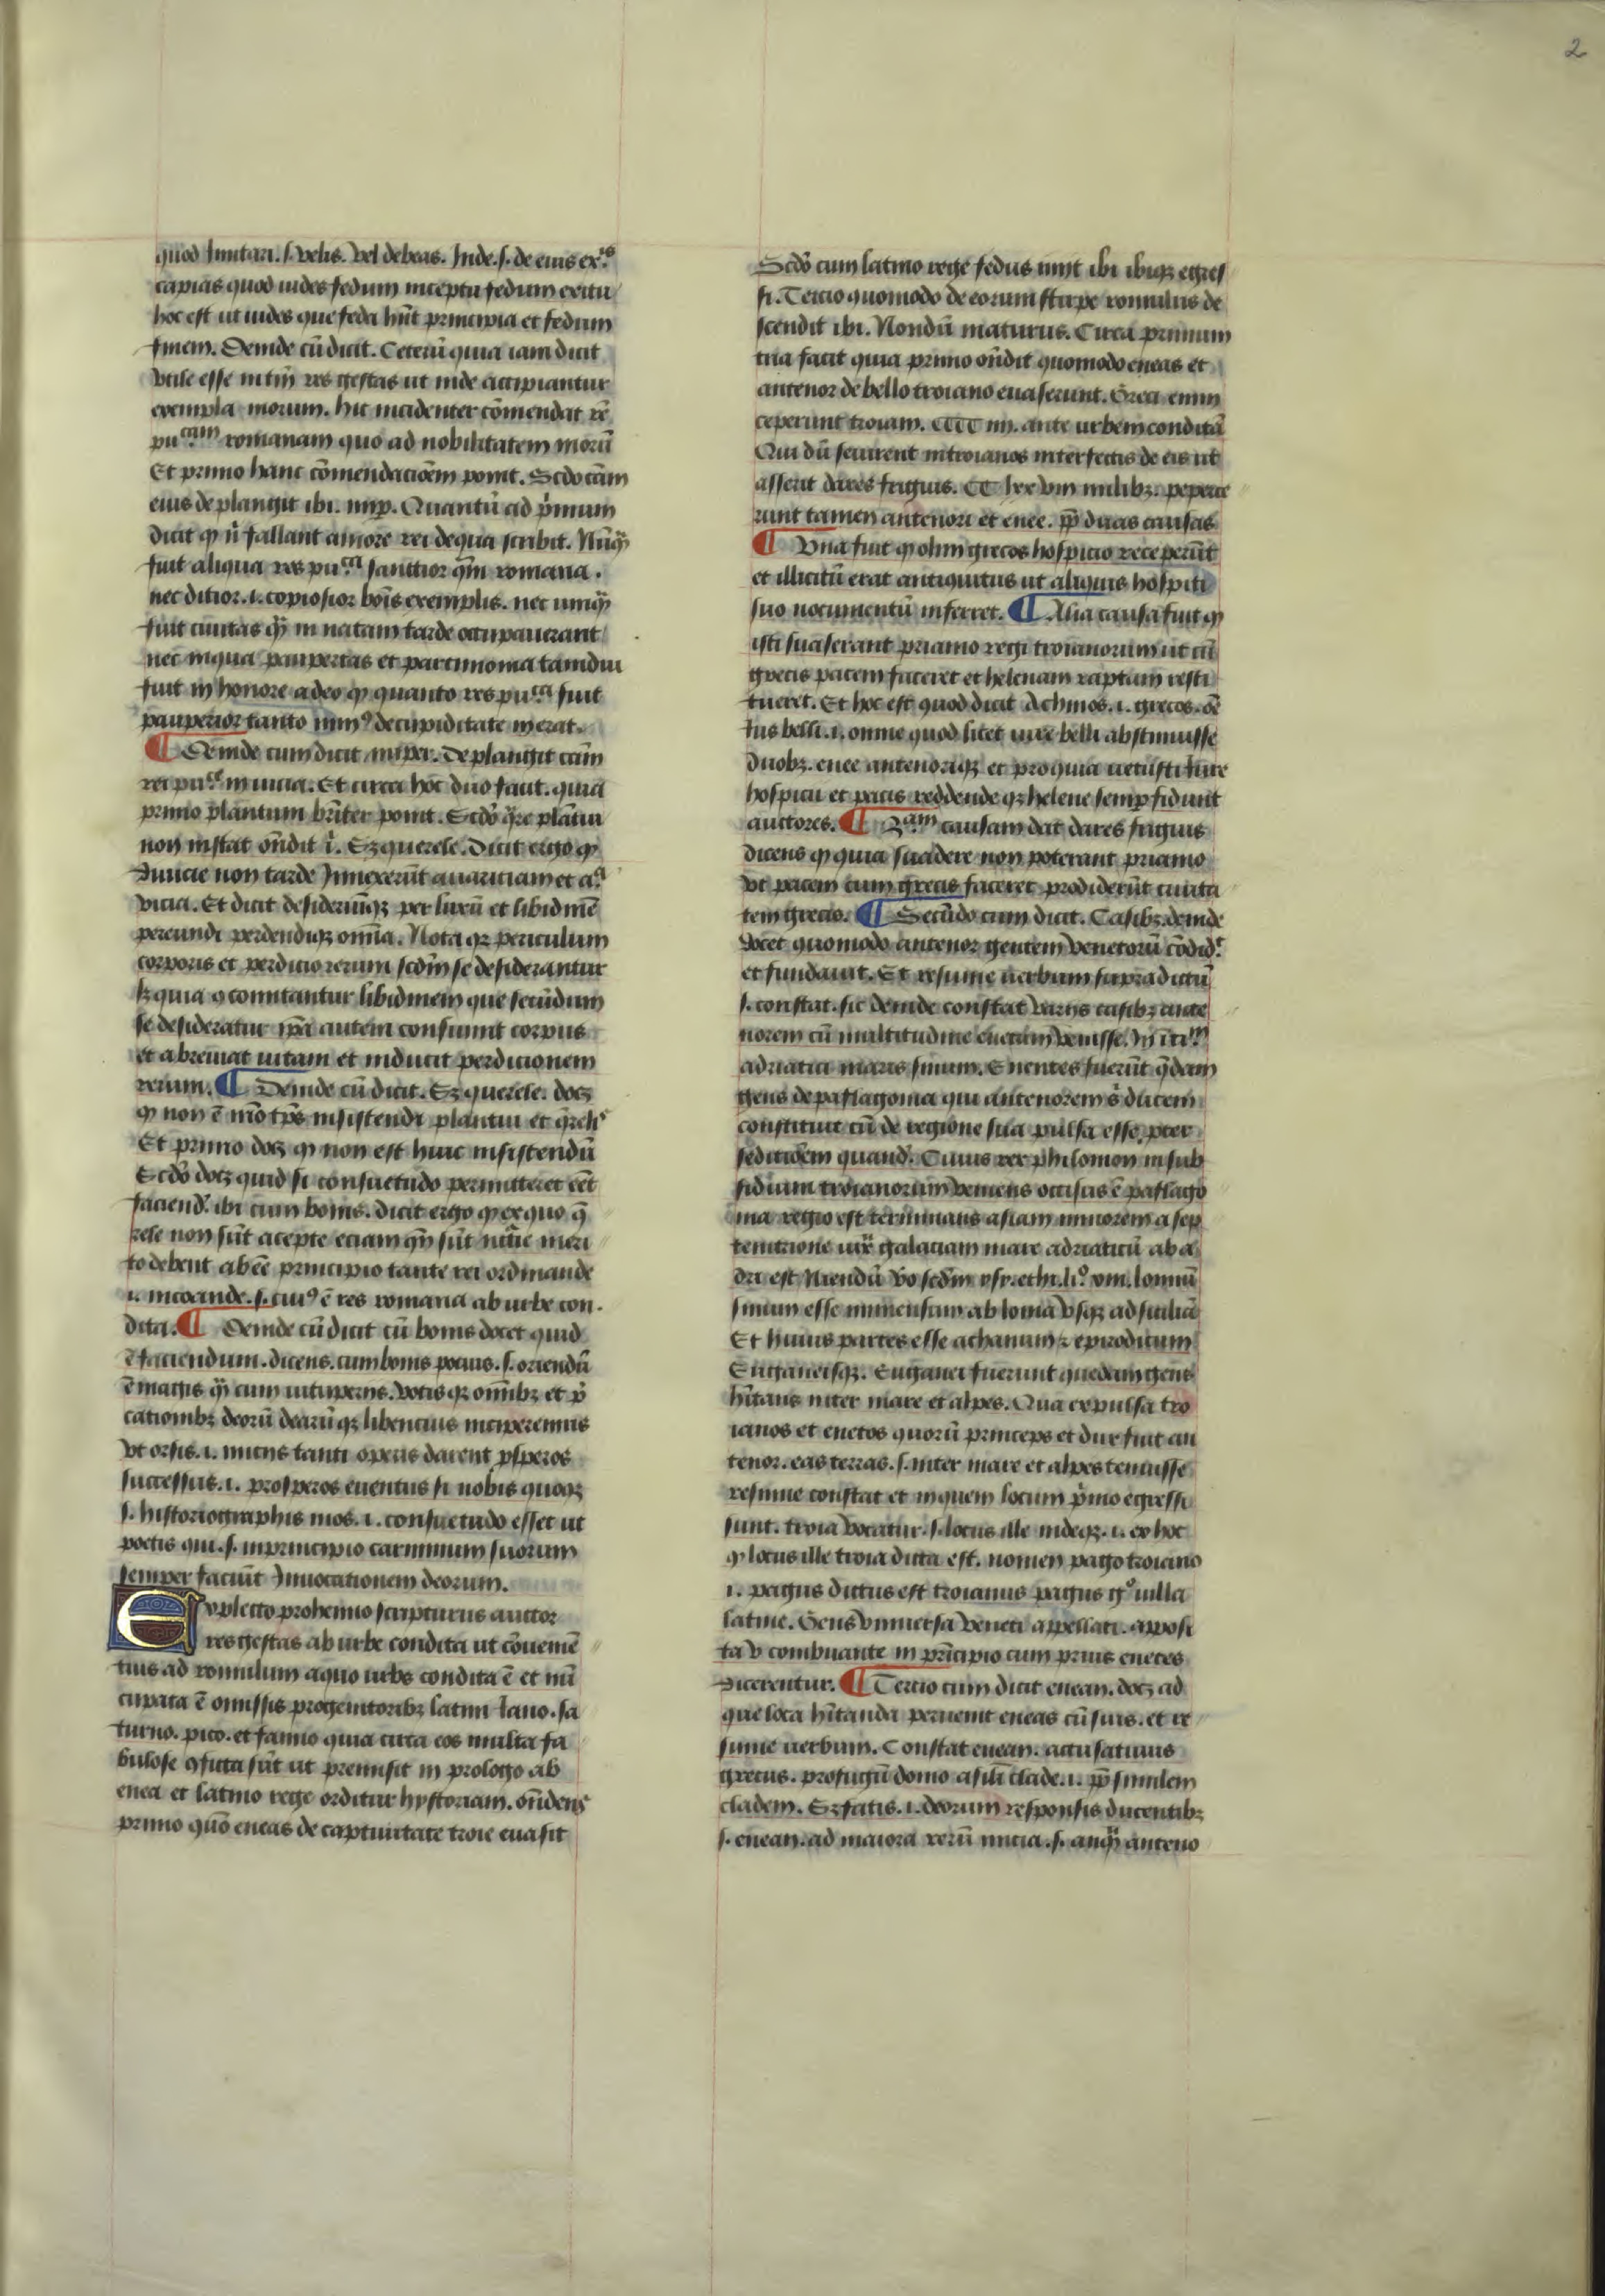 2
quod Imitari .s. velis. vel debeas. Inde .s. de eius ex.is
capias quod uides fedum inceptu fedum exitu
hoc est ut uides que feda hnt principia et fedum
finem. Deinde cū dicit. Ceterū quia iam dicit
vtile esse
exempla morum. hic incidenter cōmendat rē
pu.cam romanam quo ad nobilitatem morū
Et primo hanc cōmendacioēm ponit. Scdo cām
eius deplangit ibi. nup. Quantū ad primum
dicit ꝙ ni fallant amore rei de qua scribit. Nūꝙ
fuit aliqua res pu.ca sanctior qm romana.
nec ditior .i. copiosior bois exemplis. nec umꝙ
fuit ciuitas qm in natam tarde occupauerant
nec in qua paupertas et parcimonia tamdiu
fuit in honore adeo ꝙ quanto res pu.ca fuit
pauperior tanto min9 de cupiditate inerat.
¶ Deinde cum dicit nuper. Deplangit cām
rei pu.ce in uicia. Et circa hoc duo facit. quia
primo planctum br̄iter ponit. Scdō qre planctui
non instat ondit i. Sꝫ querele. Dicit ergo ꝙ
diuicie non tarde Innexerūt auariciam et a.a
vicia. Et dicit desideriūqꝫ per luxū et libidinē
pereundi perdendiqꝫ omīa. Nota qꝫ periculum
corporis et perdicio rerum scdm se desiderantur
sꝫ quia ꝯcomitantur libidinem que secūdum
se desideratur ipa autem consumit corpus
et abreuiat uitam et inducit perdicionem
rerum. ¶ Deinde cū dicit. Sꝫ querele. docꝫ
ꝙ non ē mō tps insistendi planctui et qreli
Et primo docꝫ ꝙ non est huic insistendū
Scdō docꝫ quid si consuetudo permitteret eēt
faciend. ibi cum bonis. dicit ergo ꝙ ex quo q̄
rele non sūt accepte eciam qn sūt nccie meri
to debent abēe principio tante rei ordinande
.i. incoande .s. cui9 ē res romana ab urbe con.
dita. ¶ Deinde cū dicit cū bonis docet quid
ē faciendum. dicens. cum bonis pocius .s. oriendū
ē magis qm cum uituperiis. votis qꝫ omībꝫ et p̄
cationibꝫ deorū dearūqꝫ libencius inciperemus
vt orsis .i. iniciis tanti operis darent pſperos
successus .i. prosperos euentus si nobis quoqꝫ
.s. historiographis mos .i. consuetudo esset ut
poetis qui .s. in principio carminum suorum
semper faciūt Inuocationem deorum.
Explecto prohemio scripturus auctor
res gestas ab urbe condita ut cōuenien
tius ad romulum a quo urbs condita ē et nū
cupata ē omissis progenitoribꝫ latini Iano. sa
turno. pico. et fauno quia circa eos multa fa
bulose ꝯficta sūt ut premisit in prologo ab
enea et latino rege orditur hystoriam. ōndens
primo quō eneas de captiuitate troie euasit
Scdō cum latino rege fedus iniit ibi ibiqꝫ egres
si. Tercio quomodo de eorum stirpe romulus de
scendit ibi. Nondū maturus. Circa primum
tria facit quia primo ōndit quomodo eneas et
antenor de bello troiano euaserunt. Greci enim
ceperunt troiam. CCCC iiii. ante urbem conditā
Qui dū seuirent in troianos interfectis de eis ut
asserit dares frigius. CC lxxviii milibꝫ. peperce
runt tamen antenori et enee. pp̄ duas causas
¶ Vna fuit ꝙ olim grecos hospicio receperūt
et illicitū erat antiquitus ut aliquis hospiti
suo nocumentū inferret. ¶ Alia causa fuit ꝙ
isti suaserant priamo regi troianorum ut cū
grecis pacem faceret et helenam raptam resti
tueret. Et hoc est quod dicit Achiuos .i. grecos. oē
Ius belli .i. omne quod licet iure belli abstinuisse
duobꝫ. enee antenoriqꝫ et pro quia uetusti Iure
hospicii et pacis reddende qꝫ helene semp fidunt
auctores. ¶ 2.am causam dat dares frigius
dicens ꝙ quia suadere non poterant priamo
vt pacem cum grecis faceret prodiderūt ciuita
tem grecis. ¶ Secūdo cum dicit. Casibꝫ. deinde
docet quomodo antenor gentem venetorū cōdid.t
et fundauit. Et resume uerbum supradictū
.s. constat. sic deinde constat variis casibꝫ ante
norem cū multitudine enetum venisse. In iti.m
adriatici maris sinum. Enentes fuerūt qdam
gens de paflagonia qui antenorem s ducem
constituit cū de regione sua pulsa esse. pter
sedicioēm quand. Cuius rex philomon in sub
sidium troianorum veniens occisus ē paflago
nia regio est terminans asiam minorem a sep
tentrione iux galaciam mare adriaticū ab a
dri est Niendū vo scdm ysy. ethi. li.o viii. Ioniū
sinum esse immensum ab Ionia vsqꝫ ad siciliā
Et huius partes esse achanum ꝛ epiroditum
Euganeisqꝫ. Euganei fuerunt quedam gens
hītans inter mare et alpes. Qua expulsa tro
ianos et enetos quorū princeps et dux fuit an
tenor. eas terras .s. inter mare et alpes tenuisse
resume constat et in quem locum p̄mo egressi
sunt. troia vocatur .s. locus ille indeqꝫ .i. ex hoc
ꝙ locus ille troia dicta est. nomen pago troiano
.i. pagus dictus est troianus pagus g.o uilla
latine. Gens vniuersa veneti appellati. apposi
ta v combinante in principio cum prius enetes
dicerentur. ¶ Tercio cum dicit enean. docꝫ ad
que loca hītanda peruenit eneas cū suis. et re
sume uerbum. Constat enean. accusatiuus
grecus. profugū domo a sīli clade .i. pp̄ similem
cladem. Sꝫ fatis .i. deorum responsis ducentibꝫ
.s. enean. ad maiora rerū inicia .s. anqm anteno